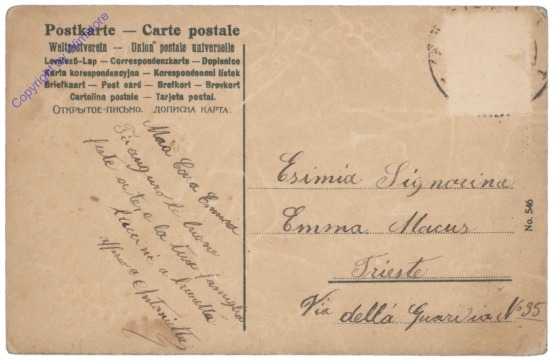 Postkarte — Carte postale
Weltpostverein — Union postale universelle
Levelező-Lap — Correspondenzkarte — Dopisnice
Karta korespondencyjna — Korespondencni listek
Briefkaart — Post card — Brefkort — Brevkort
Cartolina postale — Tarjeta postal.
ОТКРЫТОЕ-ПИСЬМО. ДОПИСНА КАРТА.
Copyright by Mirador
Mia Cara Emma
Ti auguro le buone
feste a te e la tua famiglia
baccini a
Antonietta
Esimia Signorina
Emma Macus
Trieste
Via della Guardia No 35
No. 546